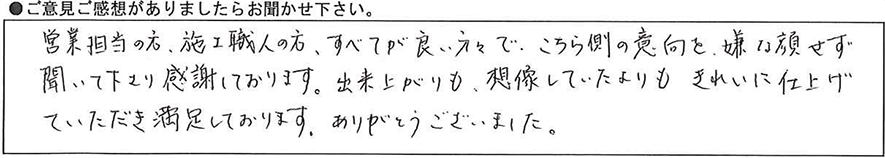 ●ご意見ご感想がありましたらお聞かせ下さい。
営業担当の方、施工職人の方、すべてが良い方々で、こちら側の意向を、嫌な顔せず
聞いて下さり感謝しております。出来上がりも、想像していたよりも きれいに仕上げ
ていただき満足しております。ありがとうございました。